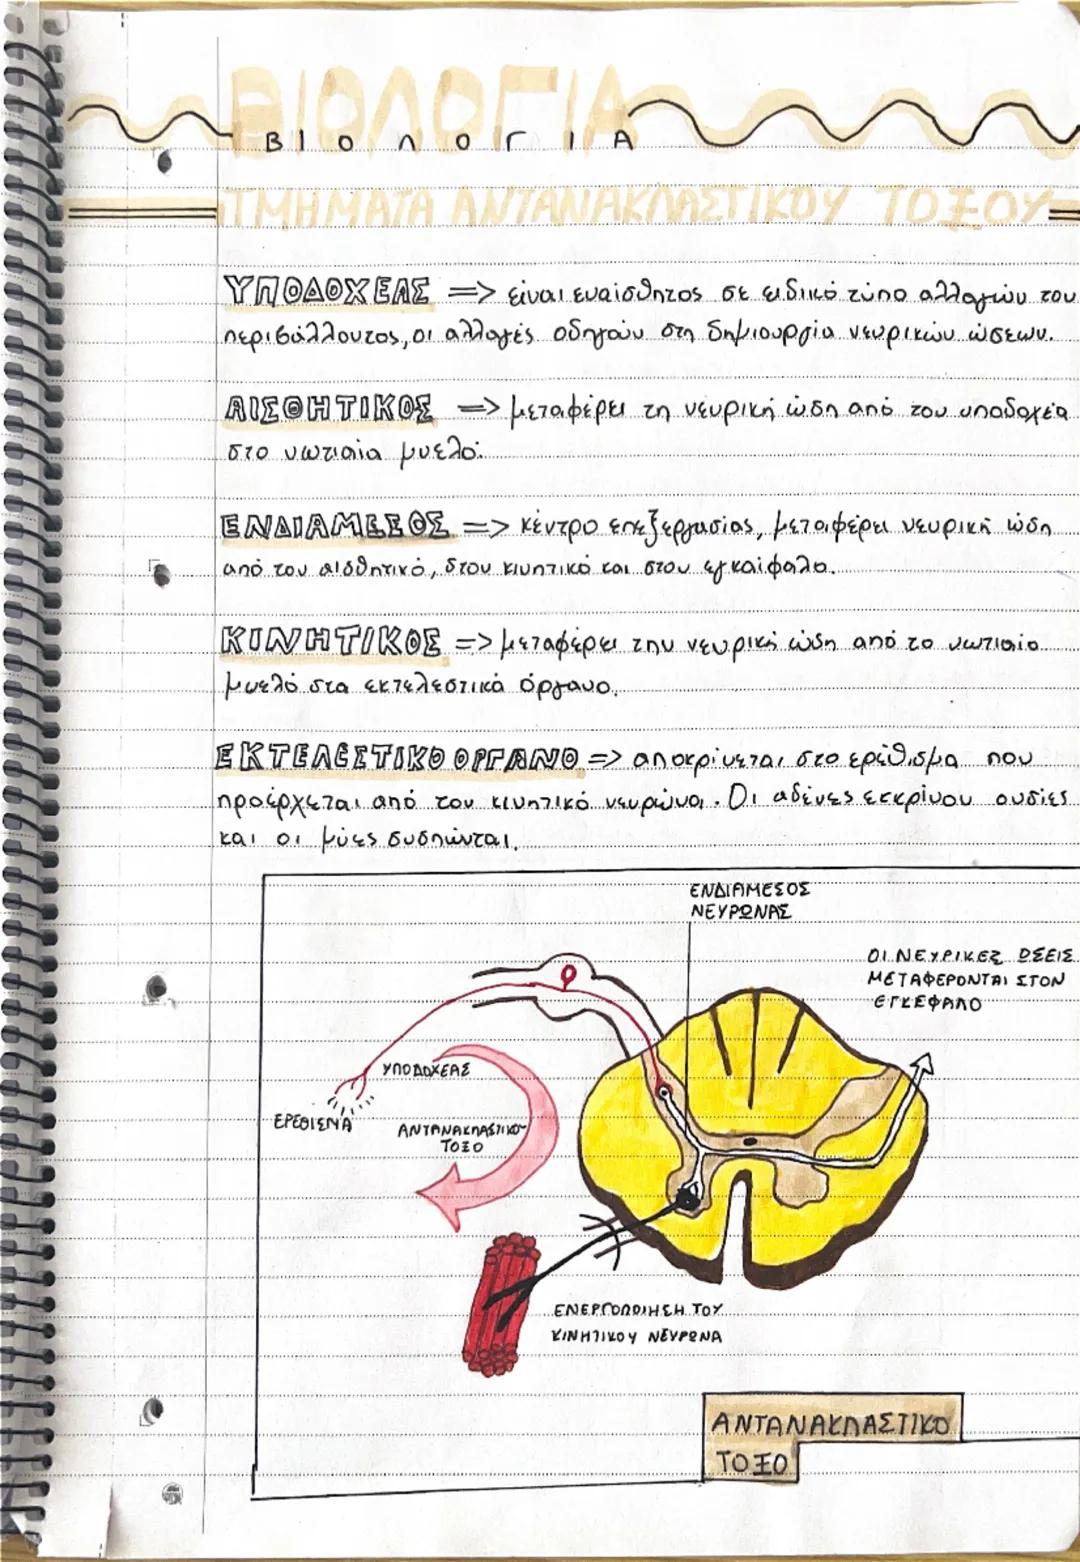 ΒΙΟΛΟΓΙΑ
ΒΙΟΛΟΓΙΑ
ΤΜΗΜΑΤΑ ΑΝΤΑΝΑΚΛΑΣΤΙΚΟΥ ΤΟΞΟΥ
ΥΠΟΔΟΧΕΑΣ => είναι ευαίσθητος σε ειδικό τύπο αλλαγών του
περιβάλλοντος, οι αλλαγές οδηγούν στη δημιουργία νευρικών ώσεων.
ΑΙΣΘΗΤΙΚΟΣ => μεταφέρει τη νευρική ώση από τον υποδοχέα
στο νωτιαία μυελό.
ΕΝΔΙΑΜΕΣΟΣ => κέντρο επεξεργασίας, μεταφέρει νευρική ώση
από τον αισθητικό, στον κινητικό και στον εγκαίφαλο.
ΚΙΝΗΤΙΚΟΣ => μεταφέρει την νευρική ώση από το νωτιαίο
μυελό στα εκτελεστικά όργανο.
ΕΚΤΕΛΕΣΤΙΚΟ ΟΡΓΑΝΟ => αποκρίνεται στο ερέθισμα που
προέρχεται από τον κινητικό νευρώνα. Οι αδένες εκκρίνου ουσίες
και οι μύες συσπώνται.
ΕΝΔΙΑΜΕΣΟΣ
ΝΕΥΡΩΝΑΣ
ΟΙ ΝΕΥΡΙΚΕΣ ΩΣΕΙΣ
ΜΕΤΑΦΕΡΟΝΤΑΙ ΣΤΟΝ
ΕΓΚΕΦΑΛΟ
ΥΠΟΔΟΧΕΑΣ
ΕΡΕΘΙΣΜΑ
ΑΝΤΑΝΑΚΛΑΣΤΙΚΟ
ΤΟΞΟ
ΕΝΕΡΓΟΠΟΙΗΣΗ ΤΟΥ
ΚΙΝΗΤΙΚΟΥ ΝΕΥΡΩΝΑ
ΑΝΤΑΝΑΚΛΑΣΤΙΚΟ
ΤΟΞΟ